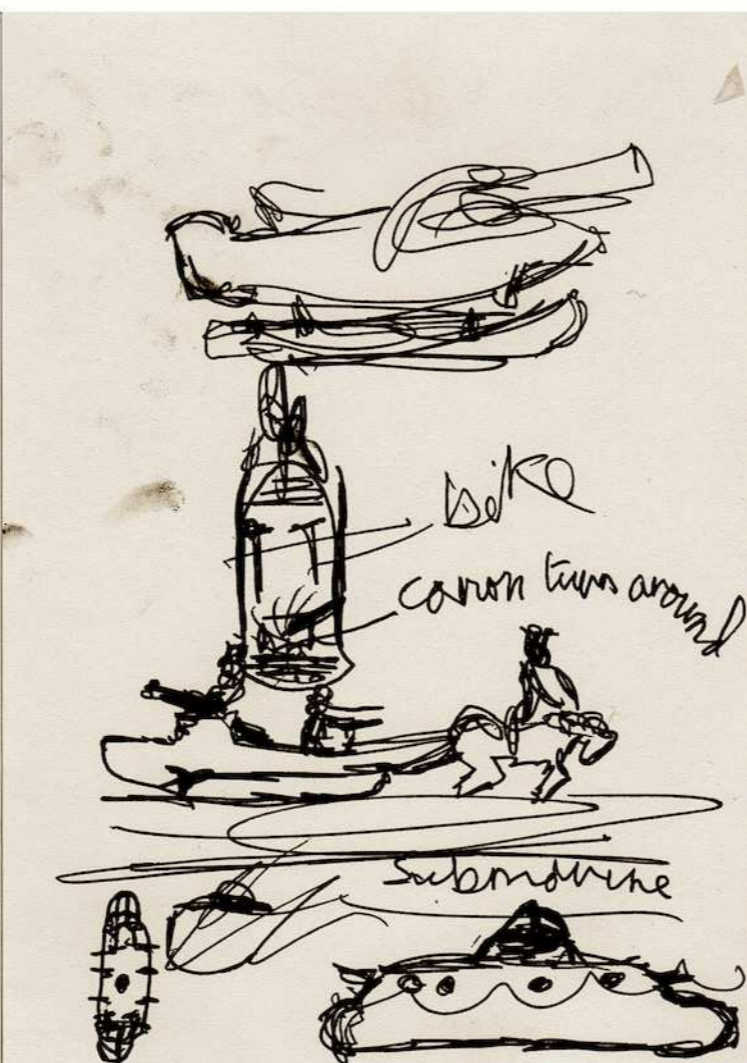 bike
canon turns around
Submarine